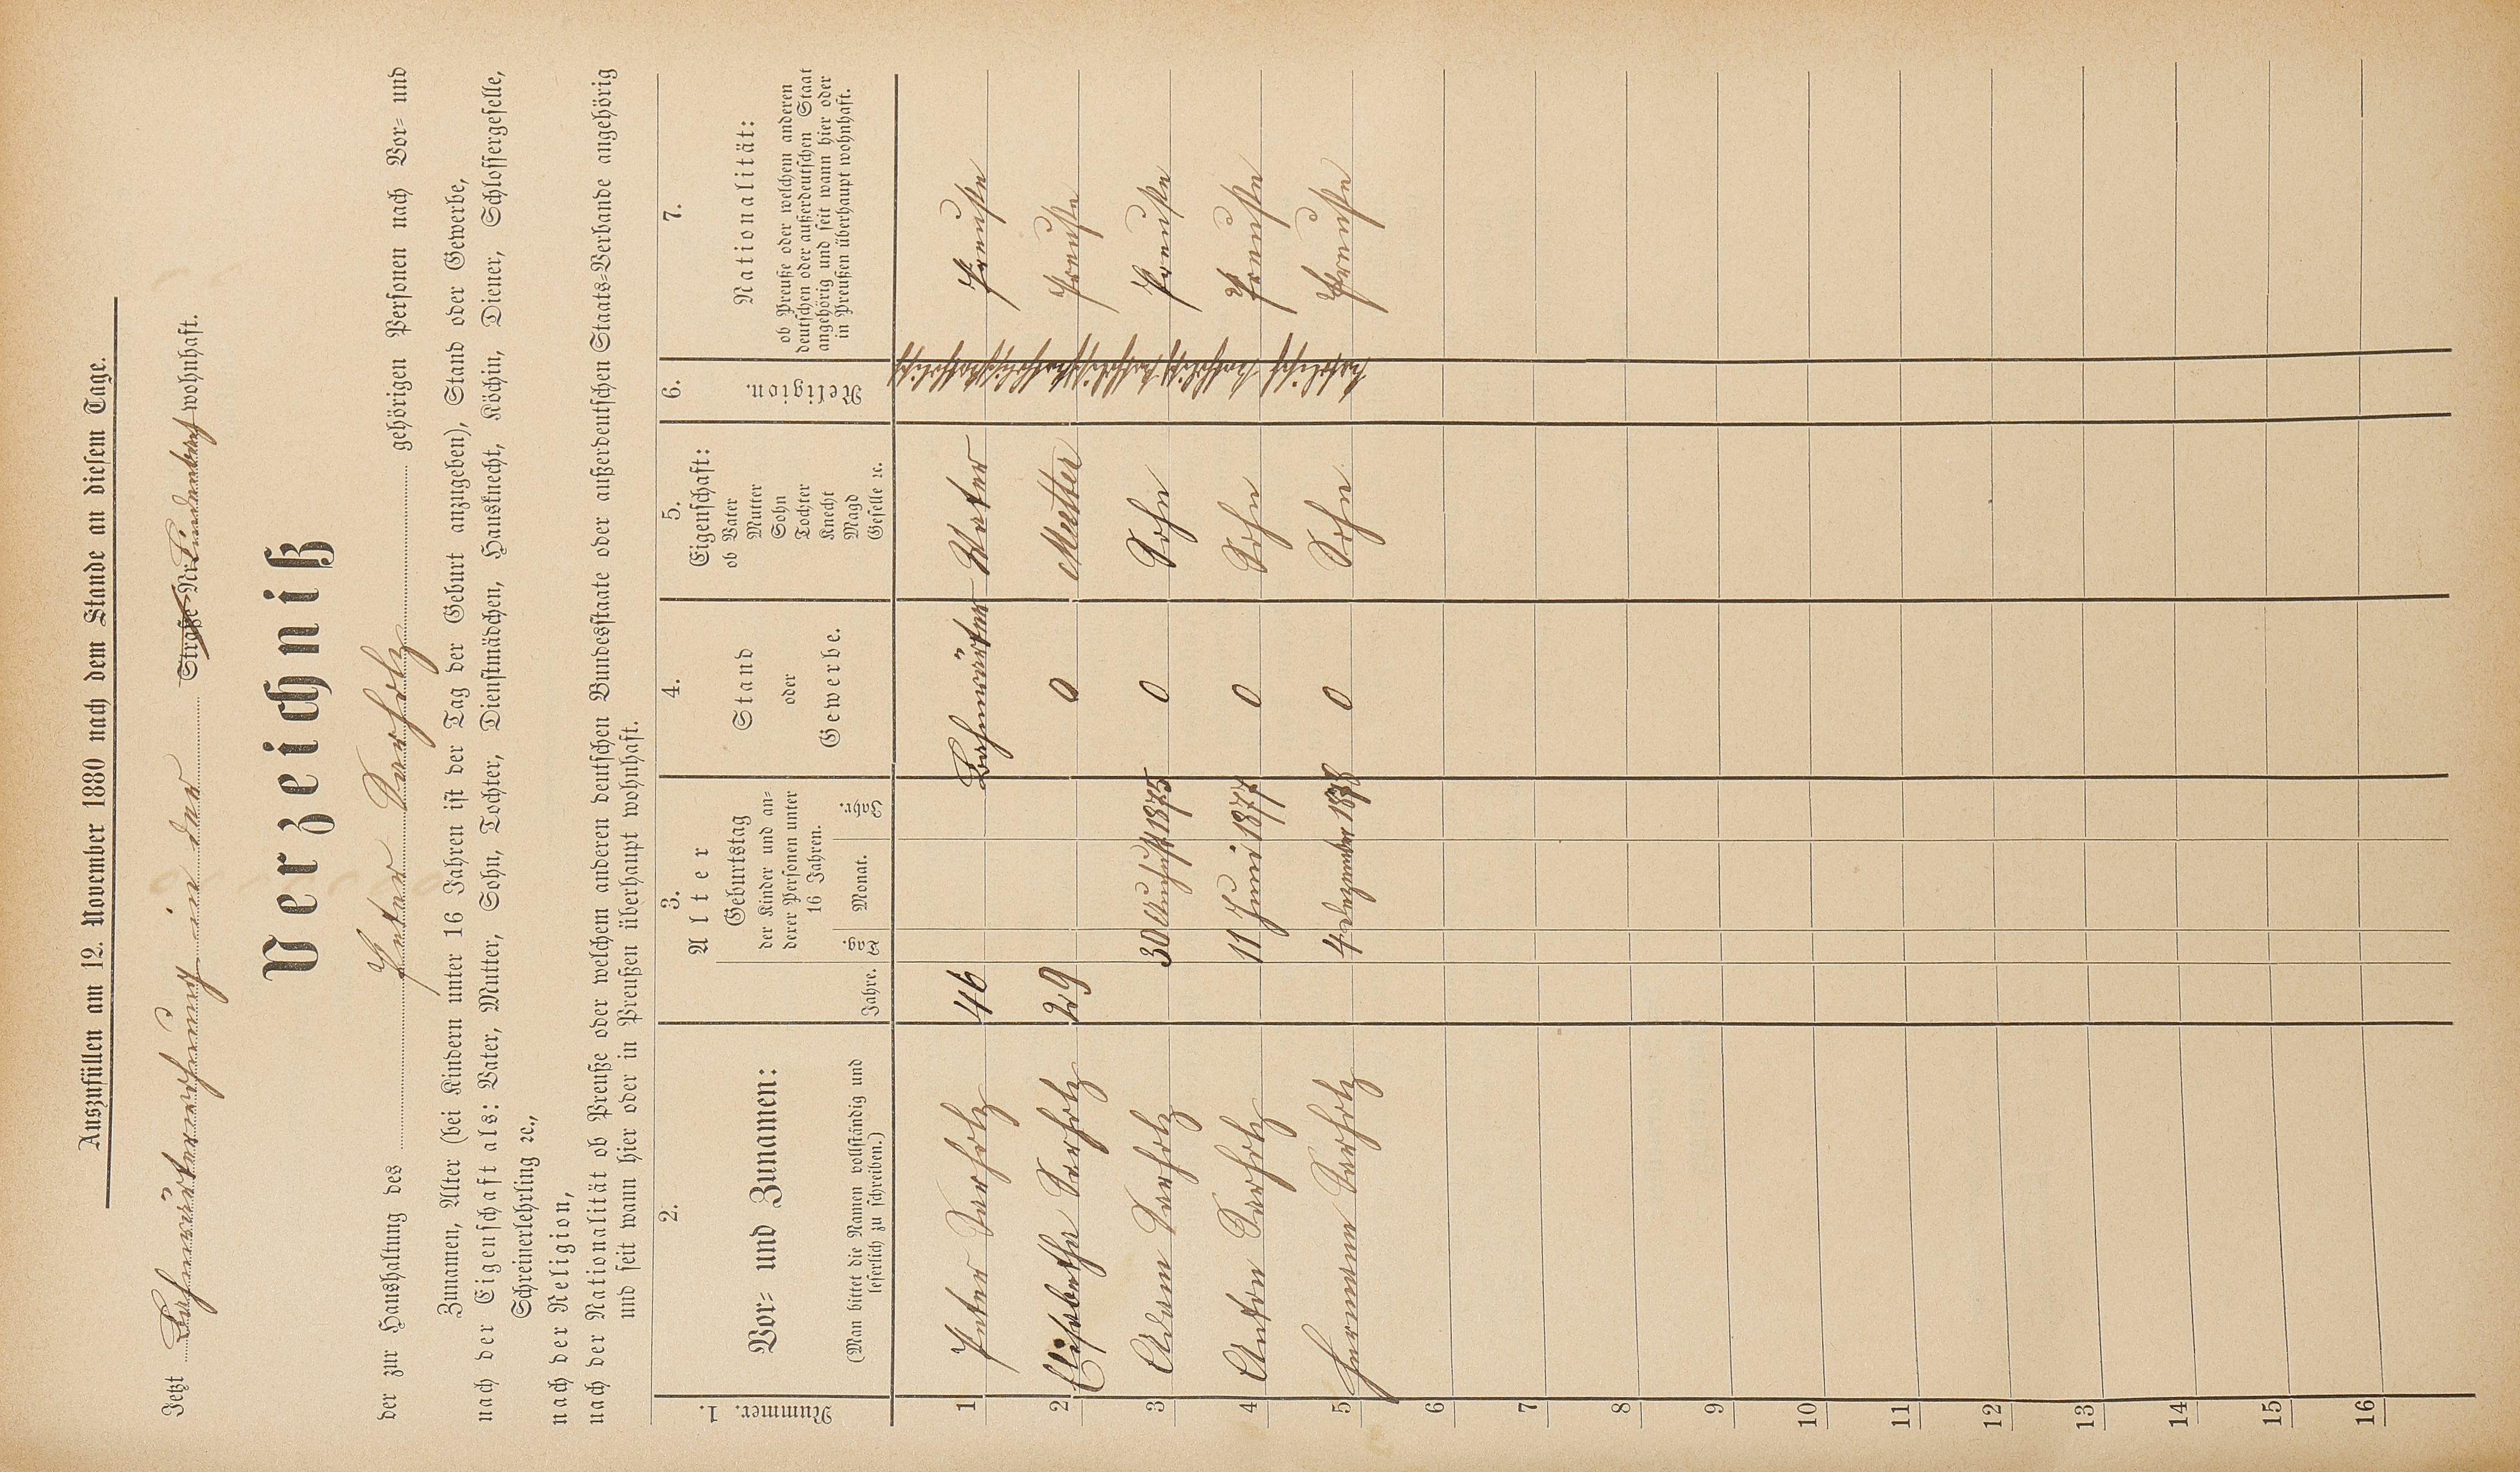 Auszufüllen am 12. November 1880 nach dem Stande an diesem Tage.
Jetzt Bahnwärterwohnung in der Straße Nr. Lindenthal wohnhaft.
Verzeichniß
der zur Haushaltung des Peter Sarholz gehörigen Personen nach Vor- und
Zunamen, Alter (bei Kindern unter 16 Jahren ist der Tag der Geburt anzugeben), Stand oder Gewerbe,
nach der Eigenschaft als: Vater, Mutter, Sohn, Tochter, Dienstmädchen, Hausknecht, Köchin, Diener, Schlossergeselle,
Schreinerlehrling ꝛc.,
nach der Religion,
nach der Nationalität ob Preuße oder welchem anderen deutschen Bundesstaate oder außerdeutschen Staats-Verbande angehörig
und seit wann hier oder in Preußen überhaupt wohnhaft.
1. Nummer.
2. Vor- und Zunamen:
(Man bittet die Namen vollständig und
leserlich zu schreiben.)
3. Alter
Jahre.
Geburtstag
der Kinder und an-
derer Personen unter
16 Jahren.
Tag. Monat. Jahr.
4. Stand
oder
Gewerbe.
5. Eigenschaft:
ob Vater
Mutter
Sohn
Tochter
Knecht
Magd
Geselle ꝛc.
6. Religion.
7. Nationalität:
ob Preuße oder welchem anderen
deutschen oder außerdeutschen Staat
angehörig und seit wann hier oder
in Preußen überhaupt wohnhaft.
1 Peter Sarholz 46 Bahnwärter Vater katholisch Preuße
2 Elisabetha Sarholz 29 0 Mutter katholisch Preuße
3 Adam Sarholz 30 August 1875 0 Sohn katholisch Preuße
4 Anton Sarholz 11 Juni 1877 0 Sohn katholisch Preuße
5 Hermann Sarholz 4 dezember 1878 0 Sohn katholisch Preuße
6
7
8
9
10
11
12
13
14
15
16